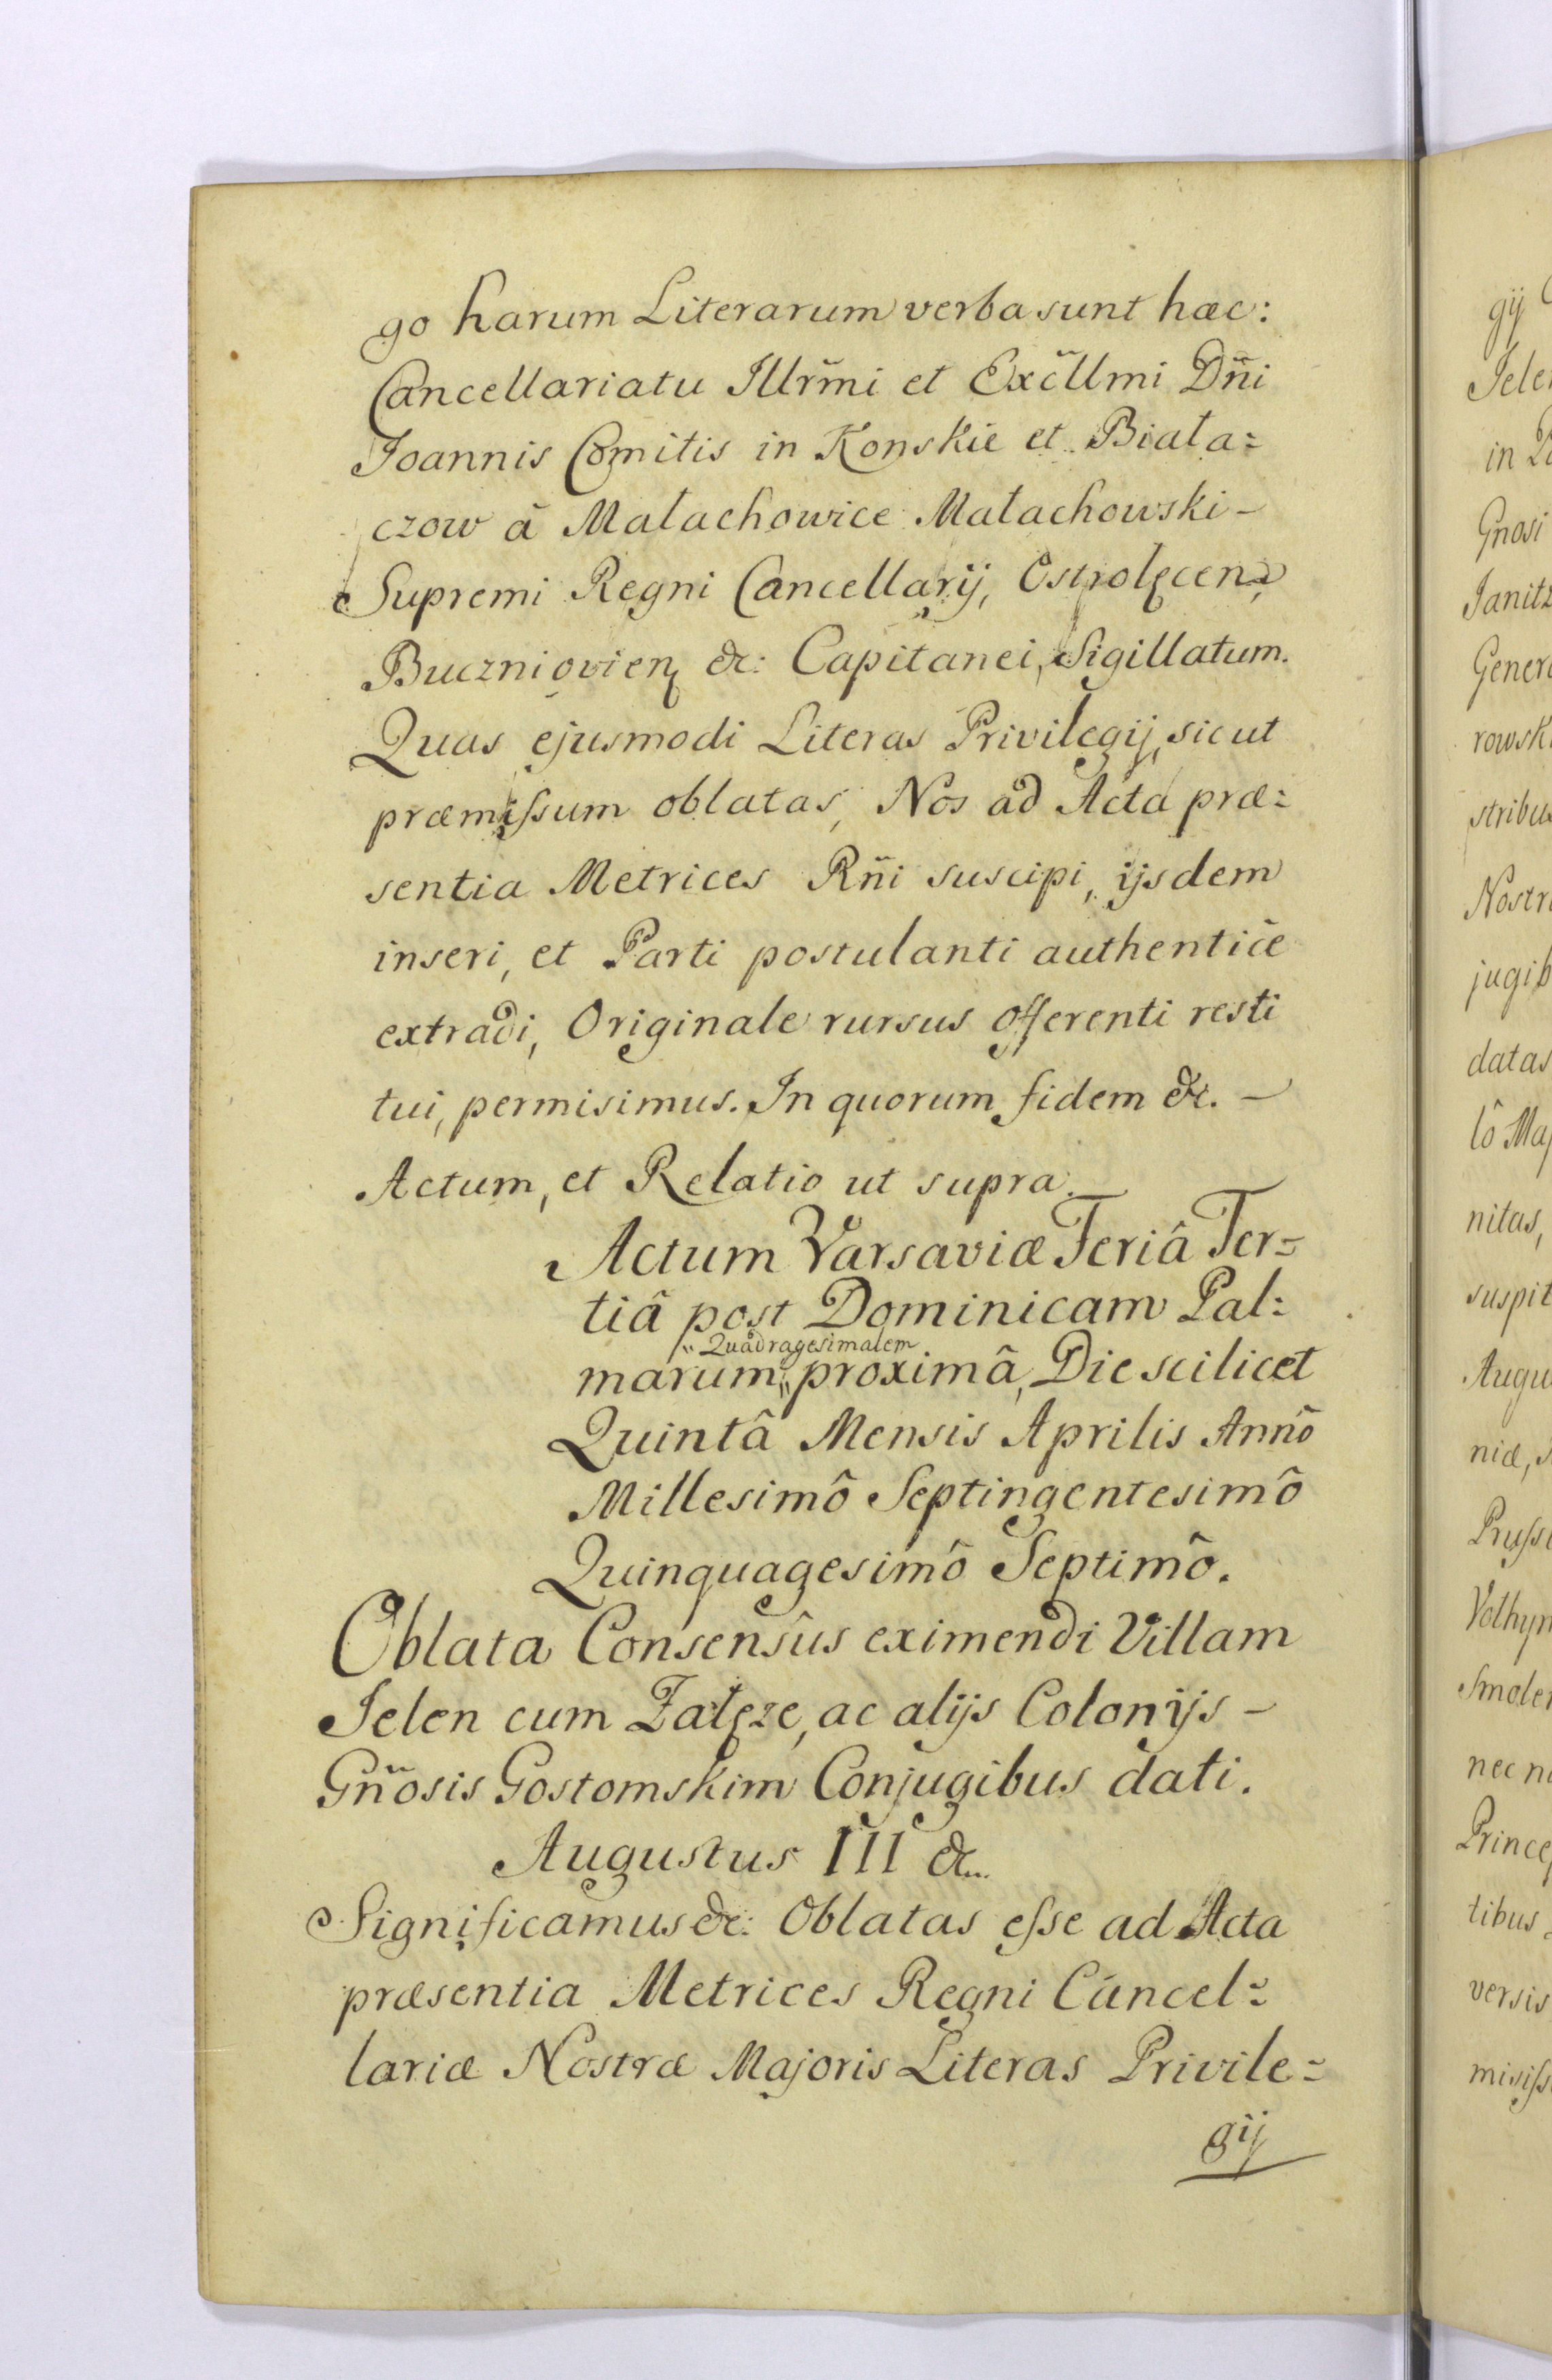 go harum Literarum verba sunt hæc:
Cancellariatu Illr̃mi et Exc̃llmi Dñi
Joannis Comitis in Konskie et Biała=
czow â Małachowice Małachowski –
Supremi Regni Cancellarij, Ostrolęcen,
Buczniovien &c: Capitanei, Sigillatum.
Quas ejusmodi Literas Privilegij, sicut
præmiſsum oblatas, Nos ad Acta præ=
sentia Metrices Rñi suscipi, ijsdem
inseri, et Parti postulanti authenticè
extradi, Originale rursus offerenti resti
tui, permisimus. In quorum fidem &c. –
Actum, et Relatio ut supra.
Actum Varsaviæ Feriâ Ter=
tiâ post Dominicam Pal=
"Quadragesimalem
marum,,proximâ, Die scilicet
Quintâ Mensis Aprilis Annô
Millesimô Septingentesimô
Quinquagesimô Septimô.
Oblata Consensûs eximendi Villam
Jelen cum Załęze, ac alijs Colonijs –
Gñosis Gostomskim Conjugibus dati.
Augustus III &...
Significamus &c: Oblatas eſse ad Acta
præsentia Metrices Regni Cancel=
lariæ Nostræ Majoris Literas Privile=
gij
gij
Jele
in
Gnosi
Janitz
Gener
rowsk
stribu
Nostr
jugib
datas
lô Maj
nitas,
suspit
Augu
niæ,
Pruſs
Volhyn
Smole
nec n
Prince
tibus
versis
misiſs